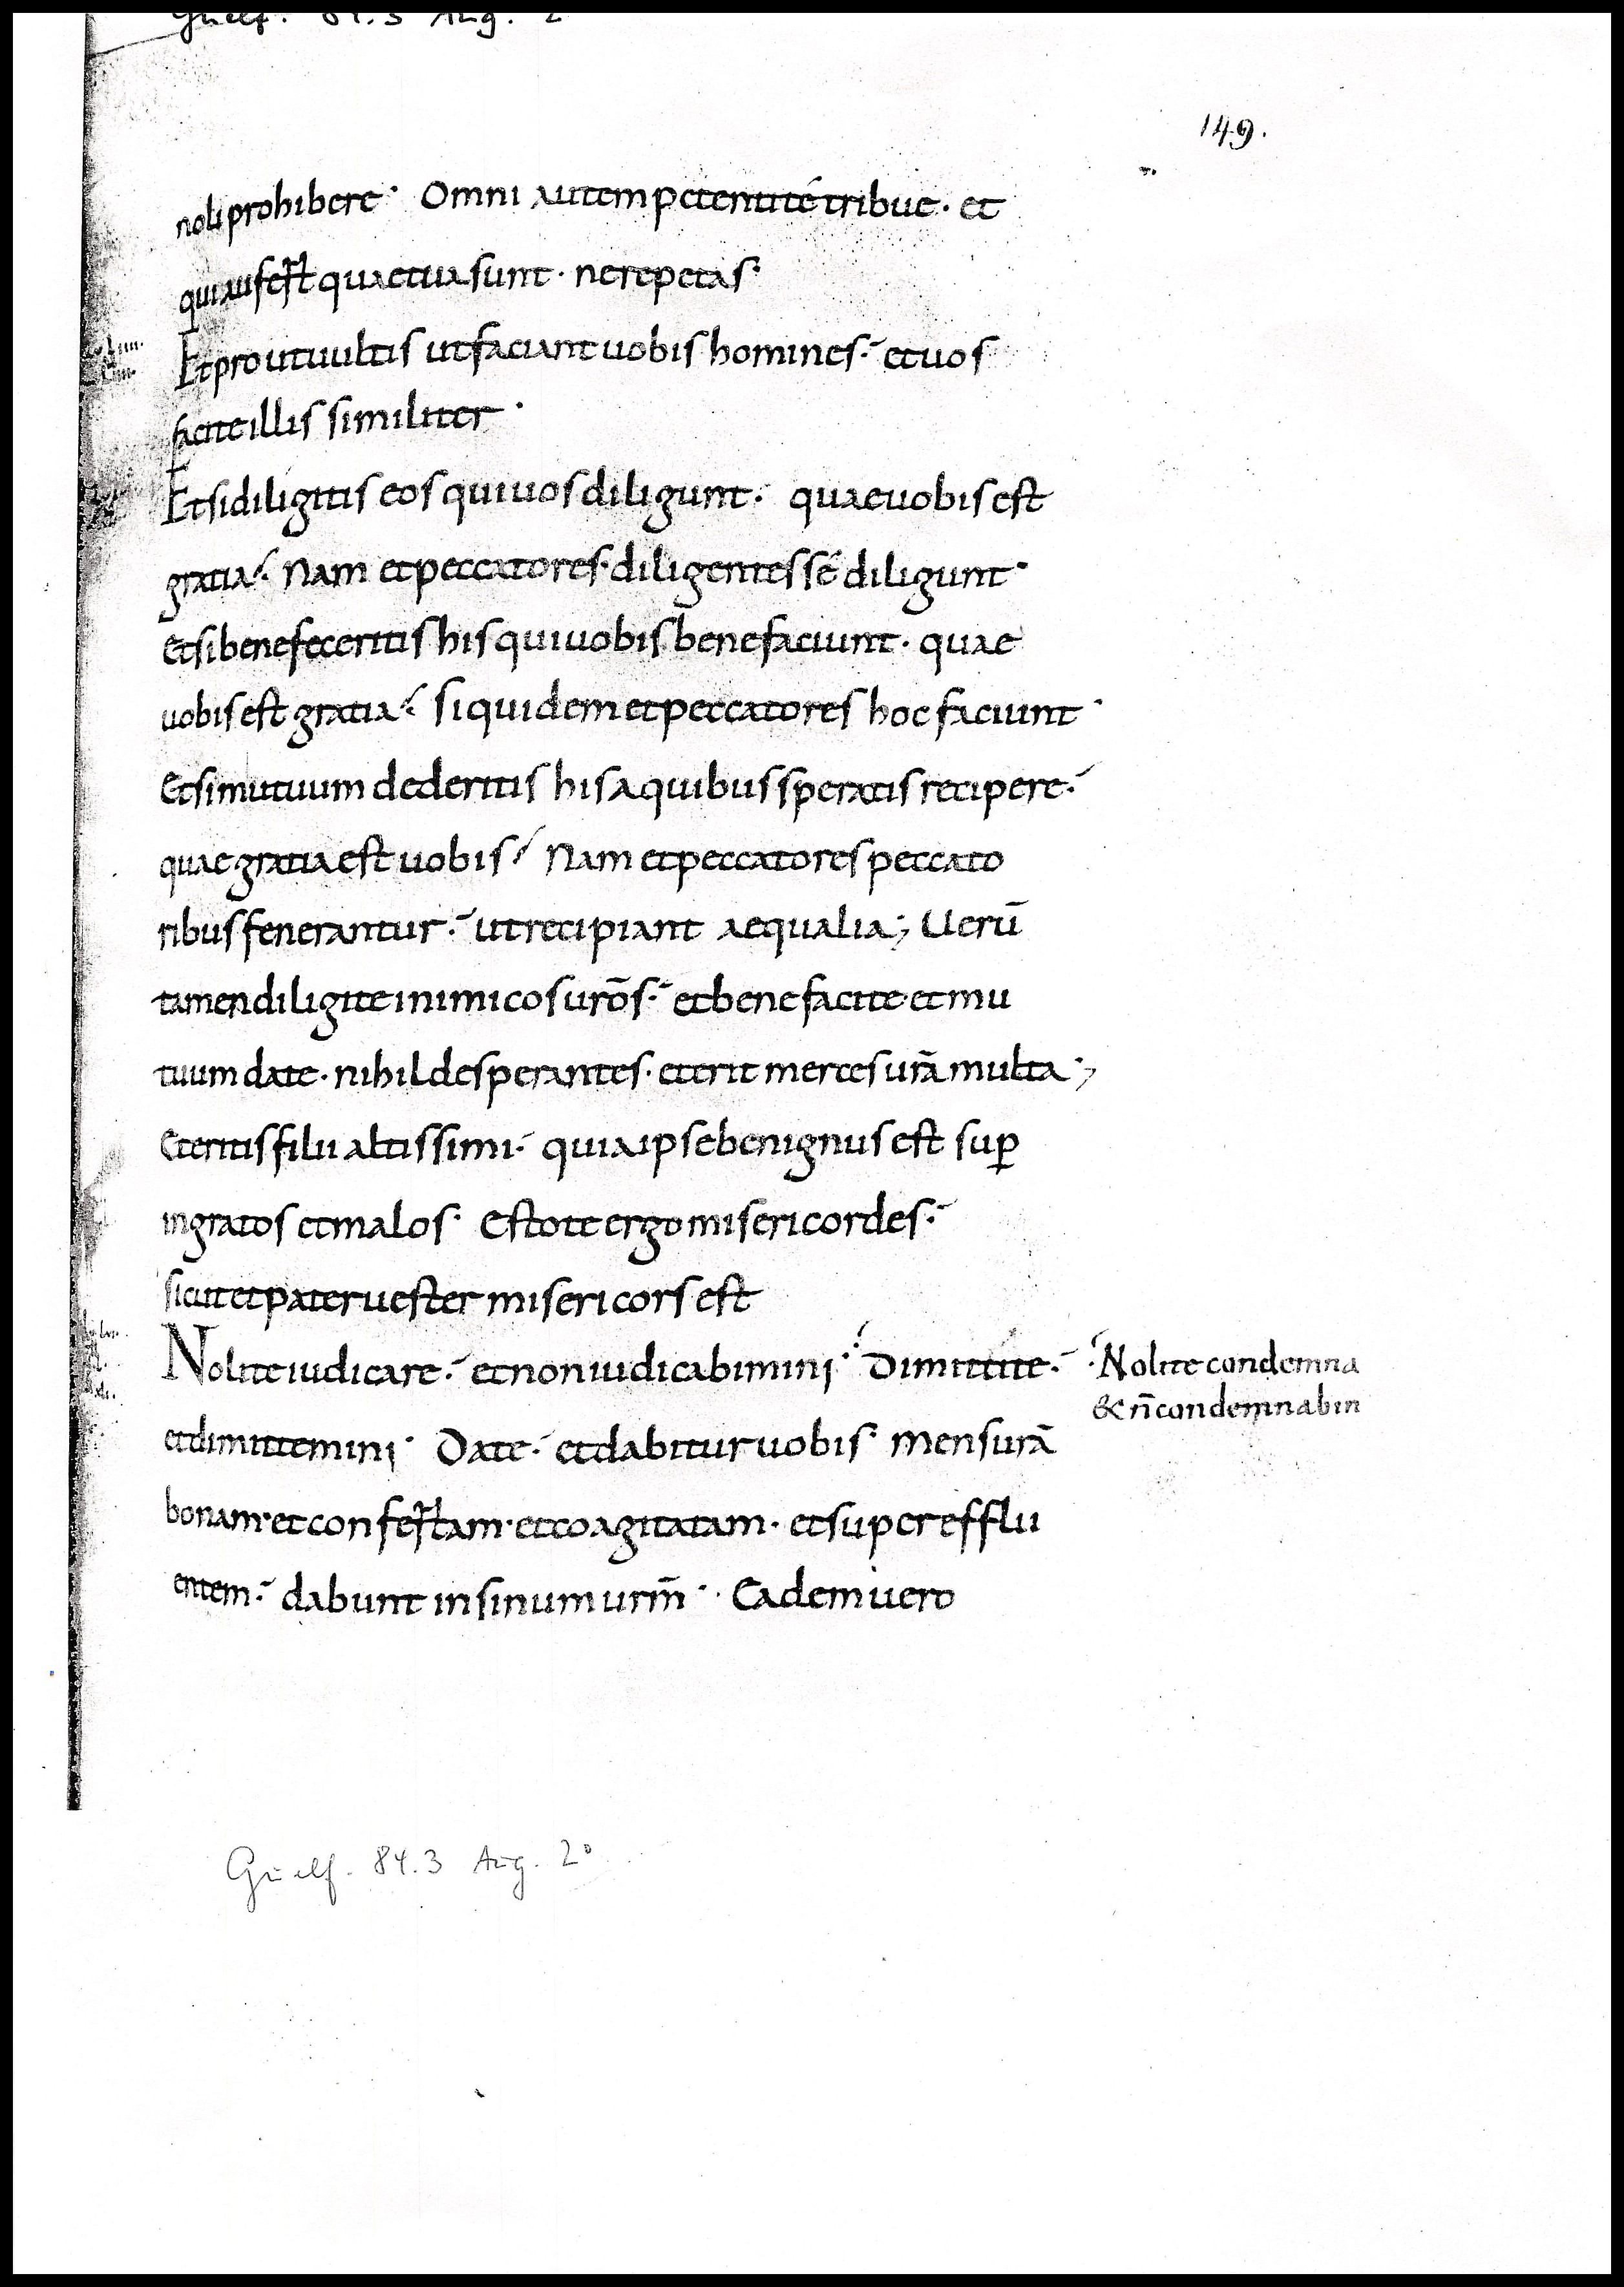 Guelf. 84.3 Aug. 2
149.
noli prohibere· Omni autem petenti té tribue· et
qui aufert quae tua sunt· ne repetas·
Et prout uultis ut faciant uobis homines· et uos
facite illis similiter·
Et si diligitis eos qui uos diligunt· quae uobis est
gratia? Nam et peccatores· diligentes sé diligunt·
Et si bene feceritis his qui uobis bene faciunt· quae
uobis est gratia? siquidem et peccatores hoc faciunt·
Et si mutuum dederitis his a quibus speratis recipere·
quae gratia est uobis? Nam et peccatores peccato
ribus fenerantur· ut recipiant aequalia; Uerū
tamen diligite inimicos urōs· et bene facite· et mu
tuum date· nihil desperantes· et erit merces urā multa;
Et eritis filii altissimi· quia ipse benignus est sup̄
ingratos et malos· Estote ergo misericordes·
sicut et pater uester misericors est
Nolite iudicare· et non iudicabimini· Dimittite·
·Nolite condemna
& n̄ condemnabin
et dimittemini· Date· et dabitur uobis· mensurā
bonam· et confertam· et coagitatam· et superefflu
entem· dabunt in sinum urm̄· Eadem uero
Guelf. 84.3 Aug. 2°